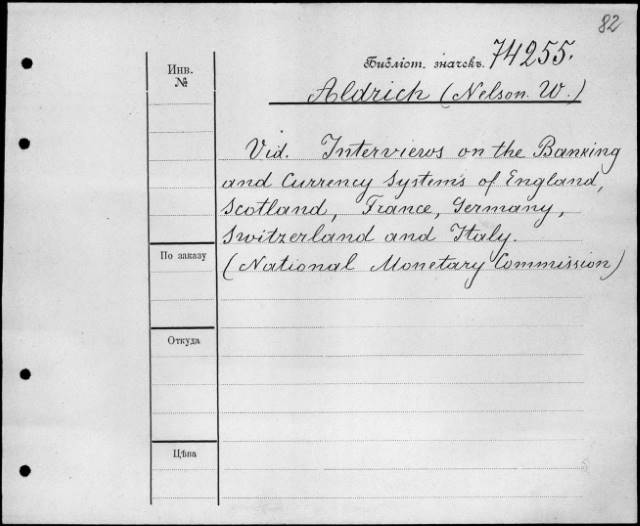 82
Библіот. значекъ. 74255.
Инв.
№
Aldrich (Nelson. W.)
Vid. Interviews on the Banking
and Currency Systems of England,
Scotland, France, Germany,
Switzerland and Italy.
(National Monetary Commission)
По заказу
Откуда
Цѣна